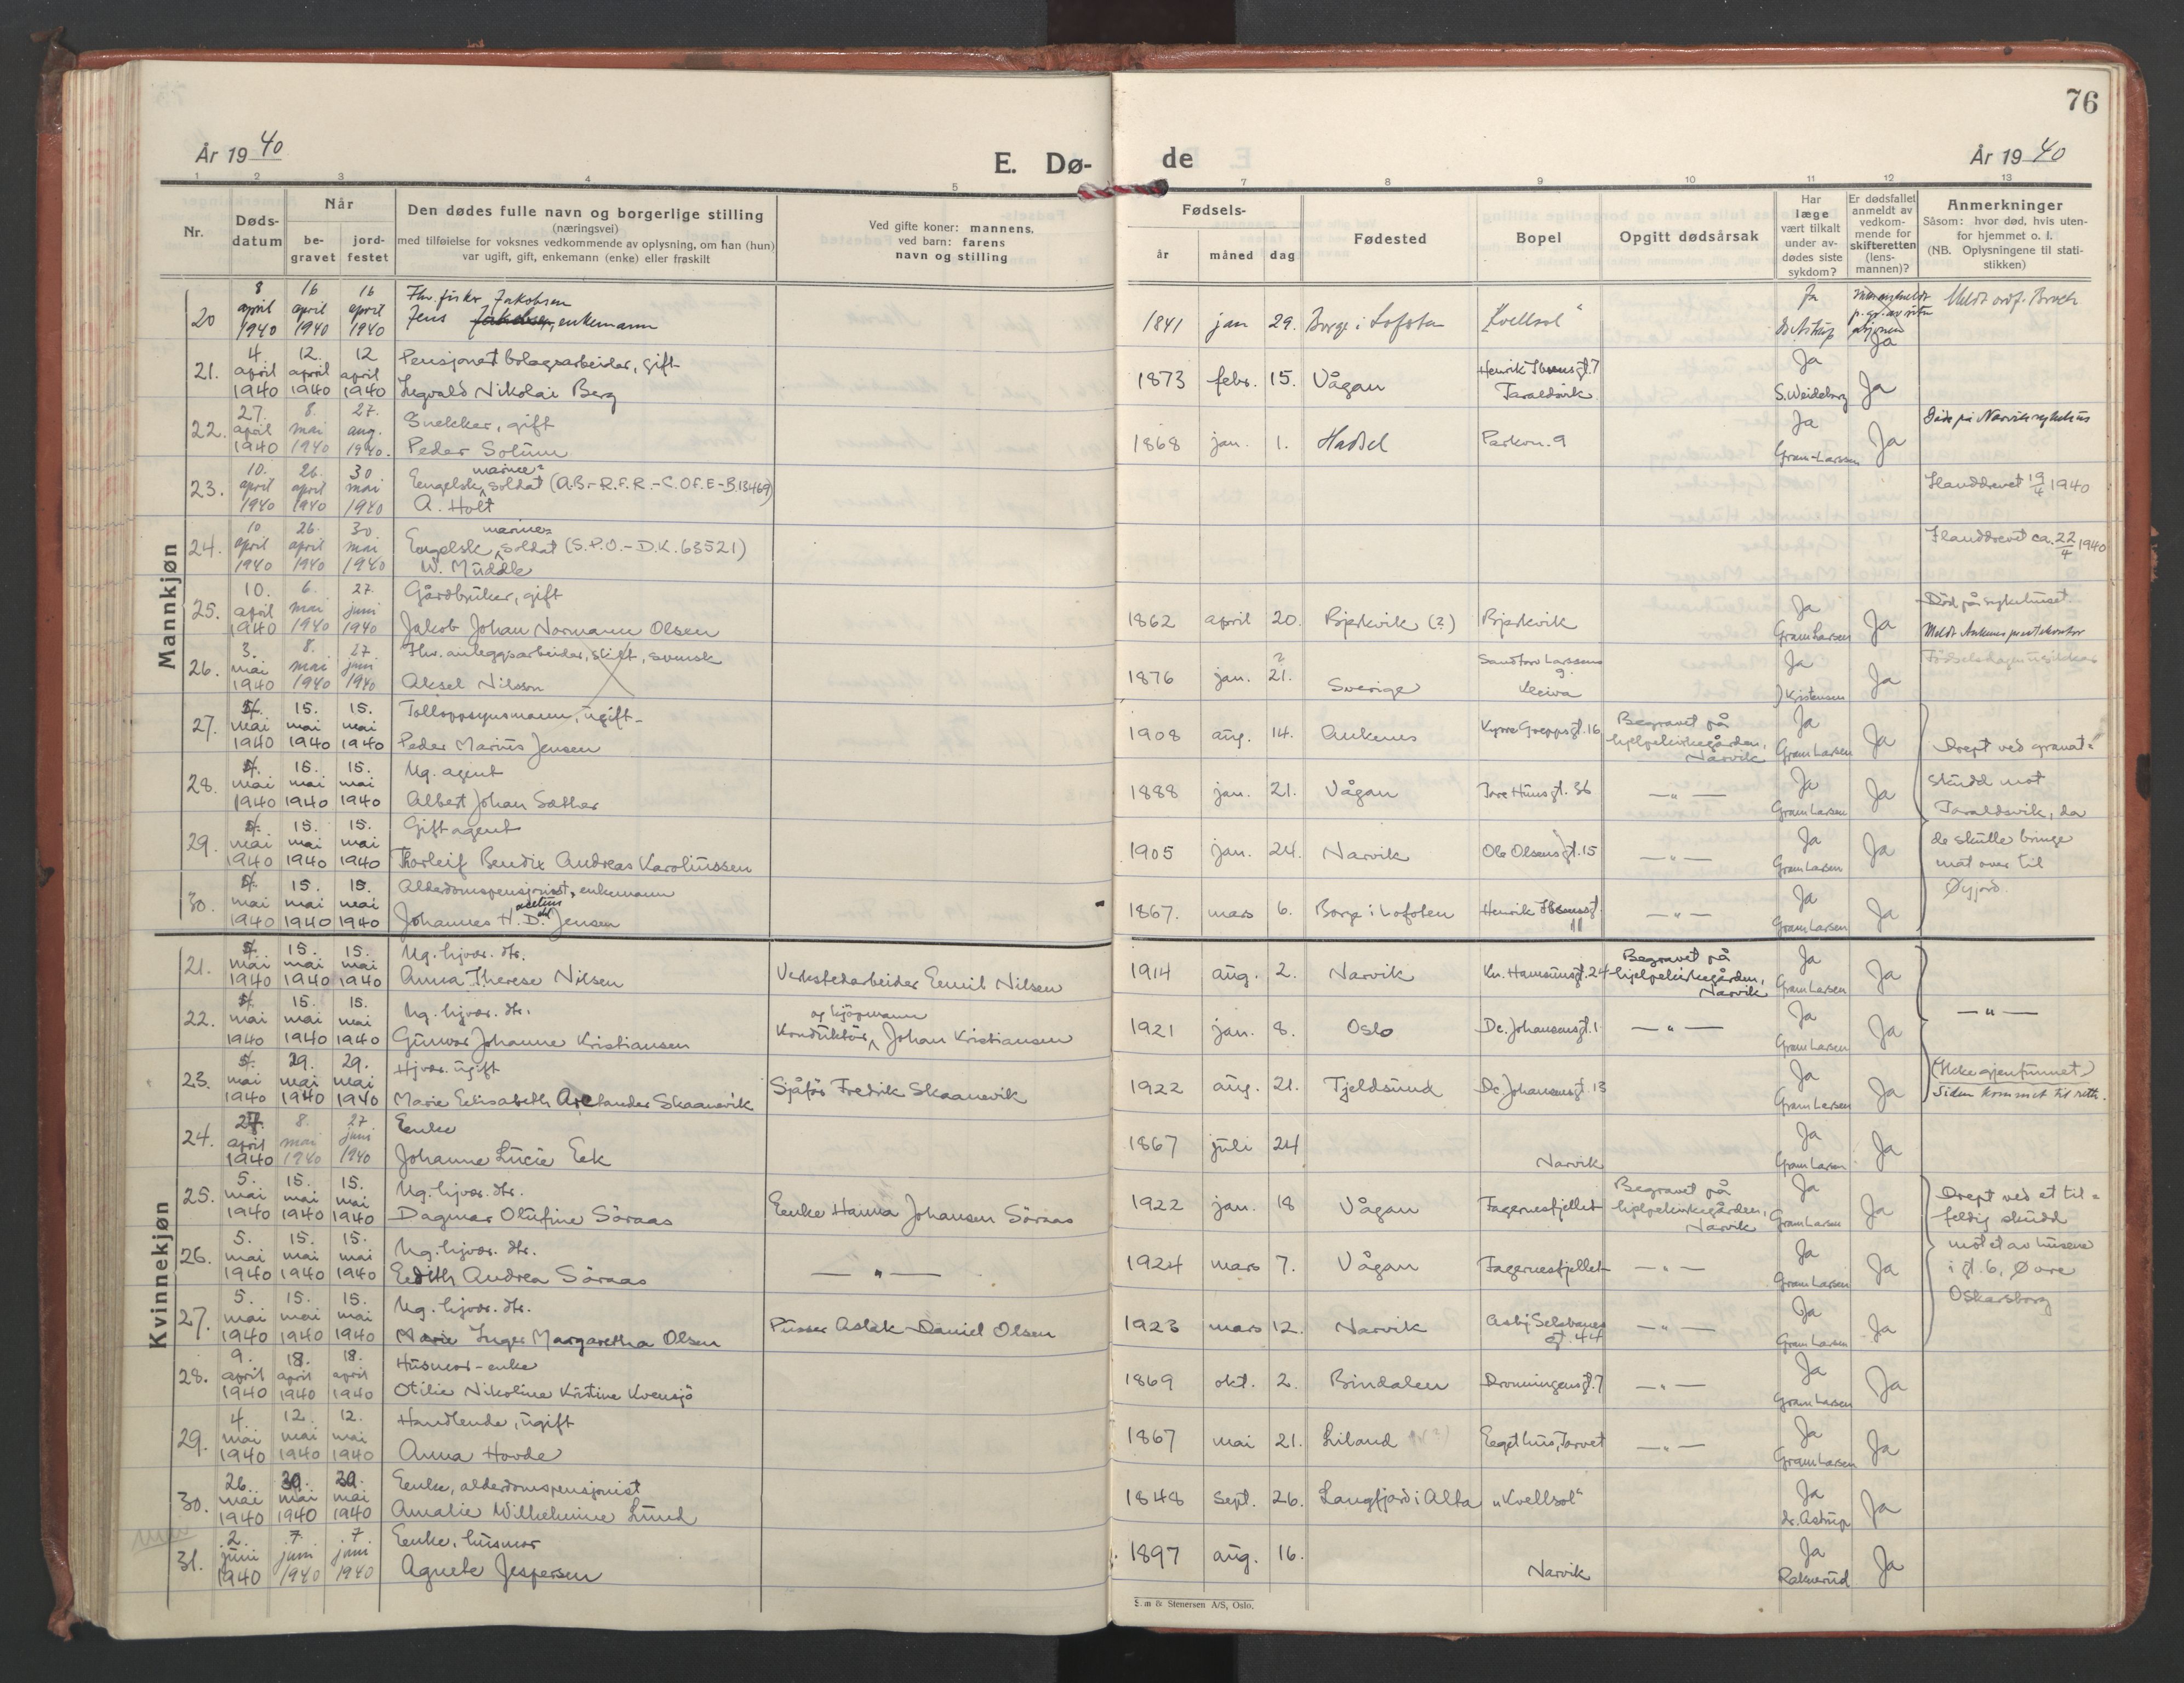 76
År 19 40
E. Dø-
de
År 19 40
1 2 3 4 5 7 8 9 10 11 12 13
Nr.
Døds-
datum
Når
be-
gravet
jord-
festet
Den dødes fulle navn og borgerlige stilling
(næringsvei)
med tilføielse for voksnes vedkommende av oplysning, om han (hun)
var ugift, gift, enkemann (enke) eller fraskilt
Ved gifte koner: mannens,
ved barn: farens
navn og stilling
Fødsels-
år måned dag
Fødested
Bopel
Opgitt dødsårsak
Har
læge
vært tilkalt
under av-
dødes siste
sykdom?
Er dødsfallet
anmeldt av
vedkom-
mende for
skifteretten
(lens-
mannen)?
Anmerkninger
Såsom: hvor død, hvis uten-
for hjemmet o. l.
(NB. Oplysningene til stati-
stikken)
Mannkjøn
20 8 april 1940 16 april 1940 16 april 1940
Fhv. fisker Jakobsen
Jens Jakobsen, enkemann
1841 jan 29. Borge i Lofoten "Kvellsol" Ja Ja
21. 4. april 1940 12. april 1940 12 april 1940
Pensjonert bolagsarbeider, gift
Ingvald Nikolai Berg
1873 febr. 15. Vågan Henrik Ibsens gt. 7 Taraldsvik Ja S. Weideborg Ja
22. 27. april 1940 8. mai 1940 27. aug. 1940.
Snekker, gift
Peder Solum
1868 jan. 1. Hadsel Parkvn. 9 Ja Gram-Larssen Ja Døde på Narvik sykehus
23. 10. april 1940 26. april 1940 30 mai 1940
Engelsk marine- soldat (A.B.-R.F.R.-C.Of.E-B.13469)
A. Holt
Ilanddrevet 19/4 1940
24. 10 april 1940 26. april 1940 30. mai 1940
Engelsk marine- soldat (S.P.O.-D.K. 63521)
W. Muddle
Ilanddrevet ca. 22/4 1940
25. 10. april 1940 6. mai 1940 27. juni 1940
Gårdbruker, gift
Jakob Johan Normann Olsen
1862 april 20. Bjerkvik (?) Bjerkvik Ja Gram Larsen Ja Død på sykehuset.
Meldt Ankenes prestekontor
26. 3. mai 1940 8. mai 1940 27 juni 1940
Fhv. anleggsarbeider, skilt, svensk
Aksel Nilsson
1876 jan. 21. ? Sverige Sandtorv Larssens g. Kleiva Ja J Kristensen Ja Fødselsdagen usikker
27. 5/. mai 1940 15. mai 1940 15. mai 1940
Tolloppsynsmann, ugift
Peder Marius Jensen
1908 aug. 14. Ankenes Kyrre Greppsgt. 16 Begravet på hjelpekirkegården, Narvik Ja Gram Larsen Ja
28. 5/. mai 1940 15. mai 1940 15. mai 1940
Ug. agent
Albert Johan Sæther
1888 jan. 21. Vågan Tore Hunsgt. 36 — " — Ja Gram Larsen Ja
29. 5/. mai 1940 15. mai 1940 15. mai 1940
Gift agent
Thorleif Bendix Andreas Karoliussen
1905 jan. 24. Narvik Ole Olsens gt. 15 — " — Ja Gram Larsen Ja
30. 5/. mai 1940 15. mai 1940 15. mai 1940
Alderdomspensjonist, enkemann
Johannes H. D. Jensen
1867. mars 6. Borge i Lofoten Henrik Ibsensgt. 11 — " — Ja Gram Larsen Ja
Drept ved granat-
skudd mot
Taraldsvik, da
de skulle bringe
mat over til
Øyjord.
Kvinnekjøn
21. 5/. mai 1940 15. mai 1940 15. mai 1940
Ug. hjvær. dtr.
Anna Therese Nilsen
Verkstedarbeider Emil Nilsen
1914 aug. 2. Narvik Kn. Hamsunsgt. 24 Begravet på hjelpekirkegården, Narvik Ja Gram Larsen Ja
22. 5/. mai 1940 15. mai 1940 15. mai 1940
Ug. hjvær. dtr.
Gunvor Johanne Kristiansen
Konduktør og kjøpmann Johan Kristiansen
1921 jan. 8. Oslo Dr. Johansensgt. 1 — " — Ja Gram Larsen Ja — " —
23. 5/. mai 1940 29. mai 1940 29. mai 1940
Hjvær. ugift
Marie Elisabeth Arctander Skaanevik
Sjåfør Fredrik Skaanevik
1922 aug. 21. Tjeldsund Dr. Johansensgt. 13 Ja Gram Larsen Ja (Ikke gjenfunnet)
Siden kommet til rette.
24. 27. april 1940 8. mai 1940 27 juni 1940
Enke
Johanne Lucie Eek
1867 juli 24 Narvik Ja Gram Larsen Ja
25. 5. mai 1940 15. mai 1940 15. mai 1940
Ug. hjvær. dtr.
Dagmar Olufine Söraas
Enke Hanna Johansen Söraas
1922 jan. 18 Vågan Fagernesfjellet Begravet på hjelpekirkegården, Narvik Ja Gram Larsen Ja
26. 5. mai 1940 15. mai 1940 15. mai 1940
Ug. hjvær. dtr.
Edith Andrea Söraas
— " —
1924 mars 7. Vågan Fagernesfjellet — " — Ja Gram Larsen Ja
27. 5. mai 1940 15. mai 1940 15. mai 1940
Ug. hjvær. dtr.
Marie Inger Margaretha Olsen
Pusser Aslak Daniel Olsen
1923 mars 12. Narvik Asbj. Selsbanes gt. 44 — " — Ja Gram Larsen Ja
Drept ved et til-
feldig skudd
mot et av husene
i gt. 6, Øvre
Oskarsborg
28. 9. april 1940 18. april 1940 18. april 1940
Husmor - enke
Otilie Nikoline Kristine Kvensjö
1869 okt. 2. Bindalen Dronningensgt. 7 — " — Ja Gram Larsen Ja
29. 4. mai 1940 12. mai 1940 12. mai 1940
Handlende, ugift
Anna Hovde
1867 mai 21. Liland Eget hus, Torvet — " — Ja Gram Larsen Ja
30. 26. mai 1940 30. mai 1940 30. mai 1940
Enke, alderdomspensjonist
Amalie Wilhelmine Lund
1848 Sept. 26. Langfjord i Alta "Kvellsol" Ja dr. Astrup Ja
31. 2. juni 1940 7. juni 1940 7 juni 1940
Enke, husmor
Agnete Jespersen
1897 aug. 16. Narvik Ja Raknerud Ja
Sem & Stenersen A/S, Oslo.